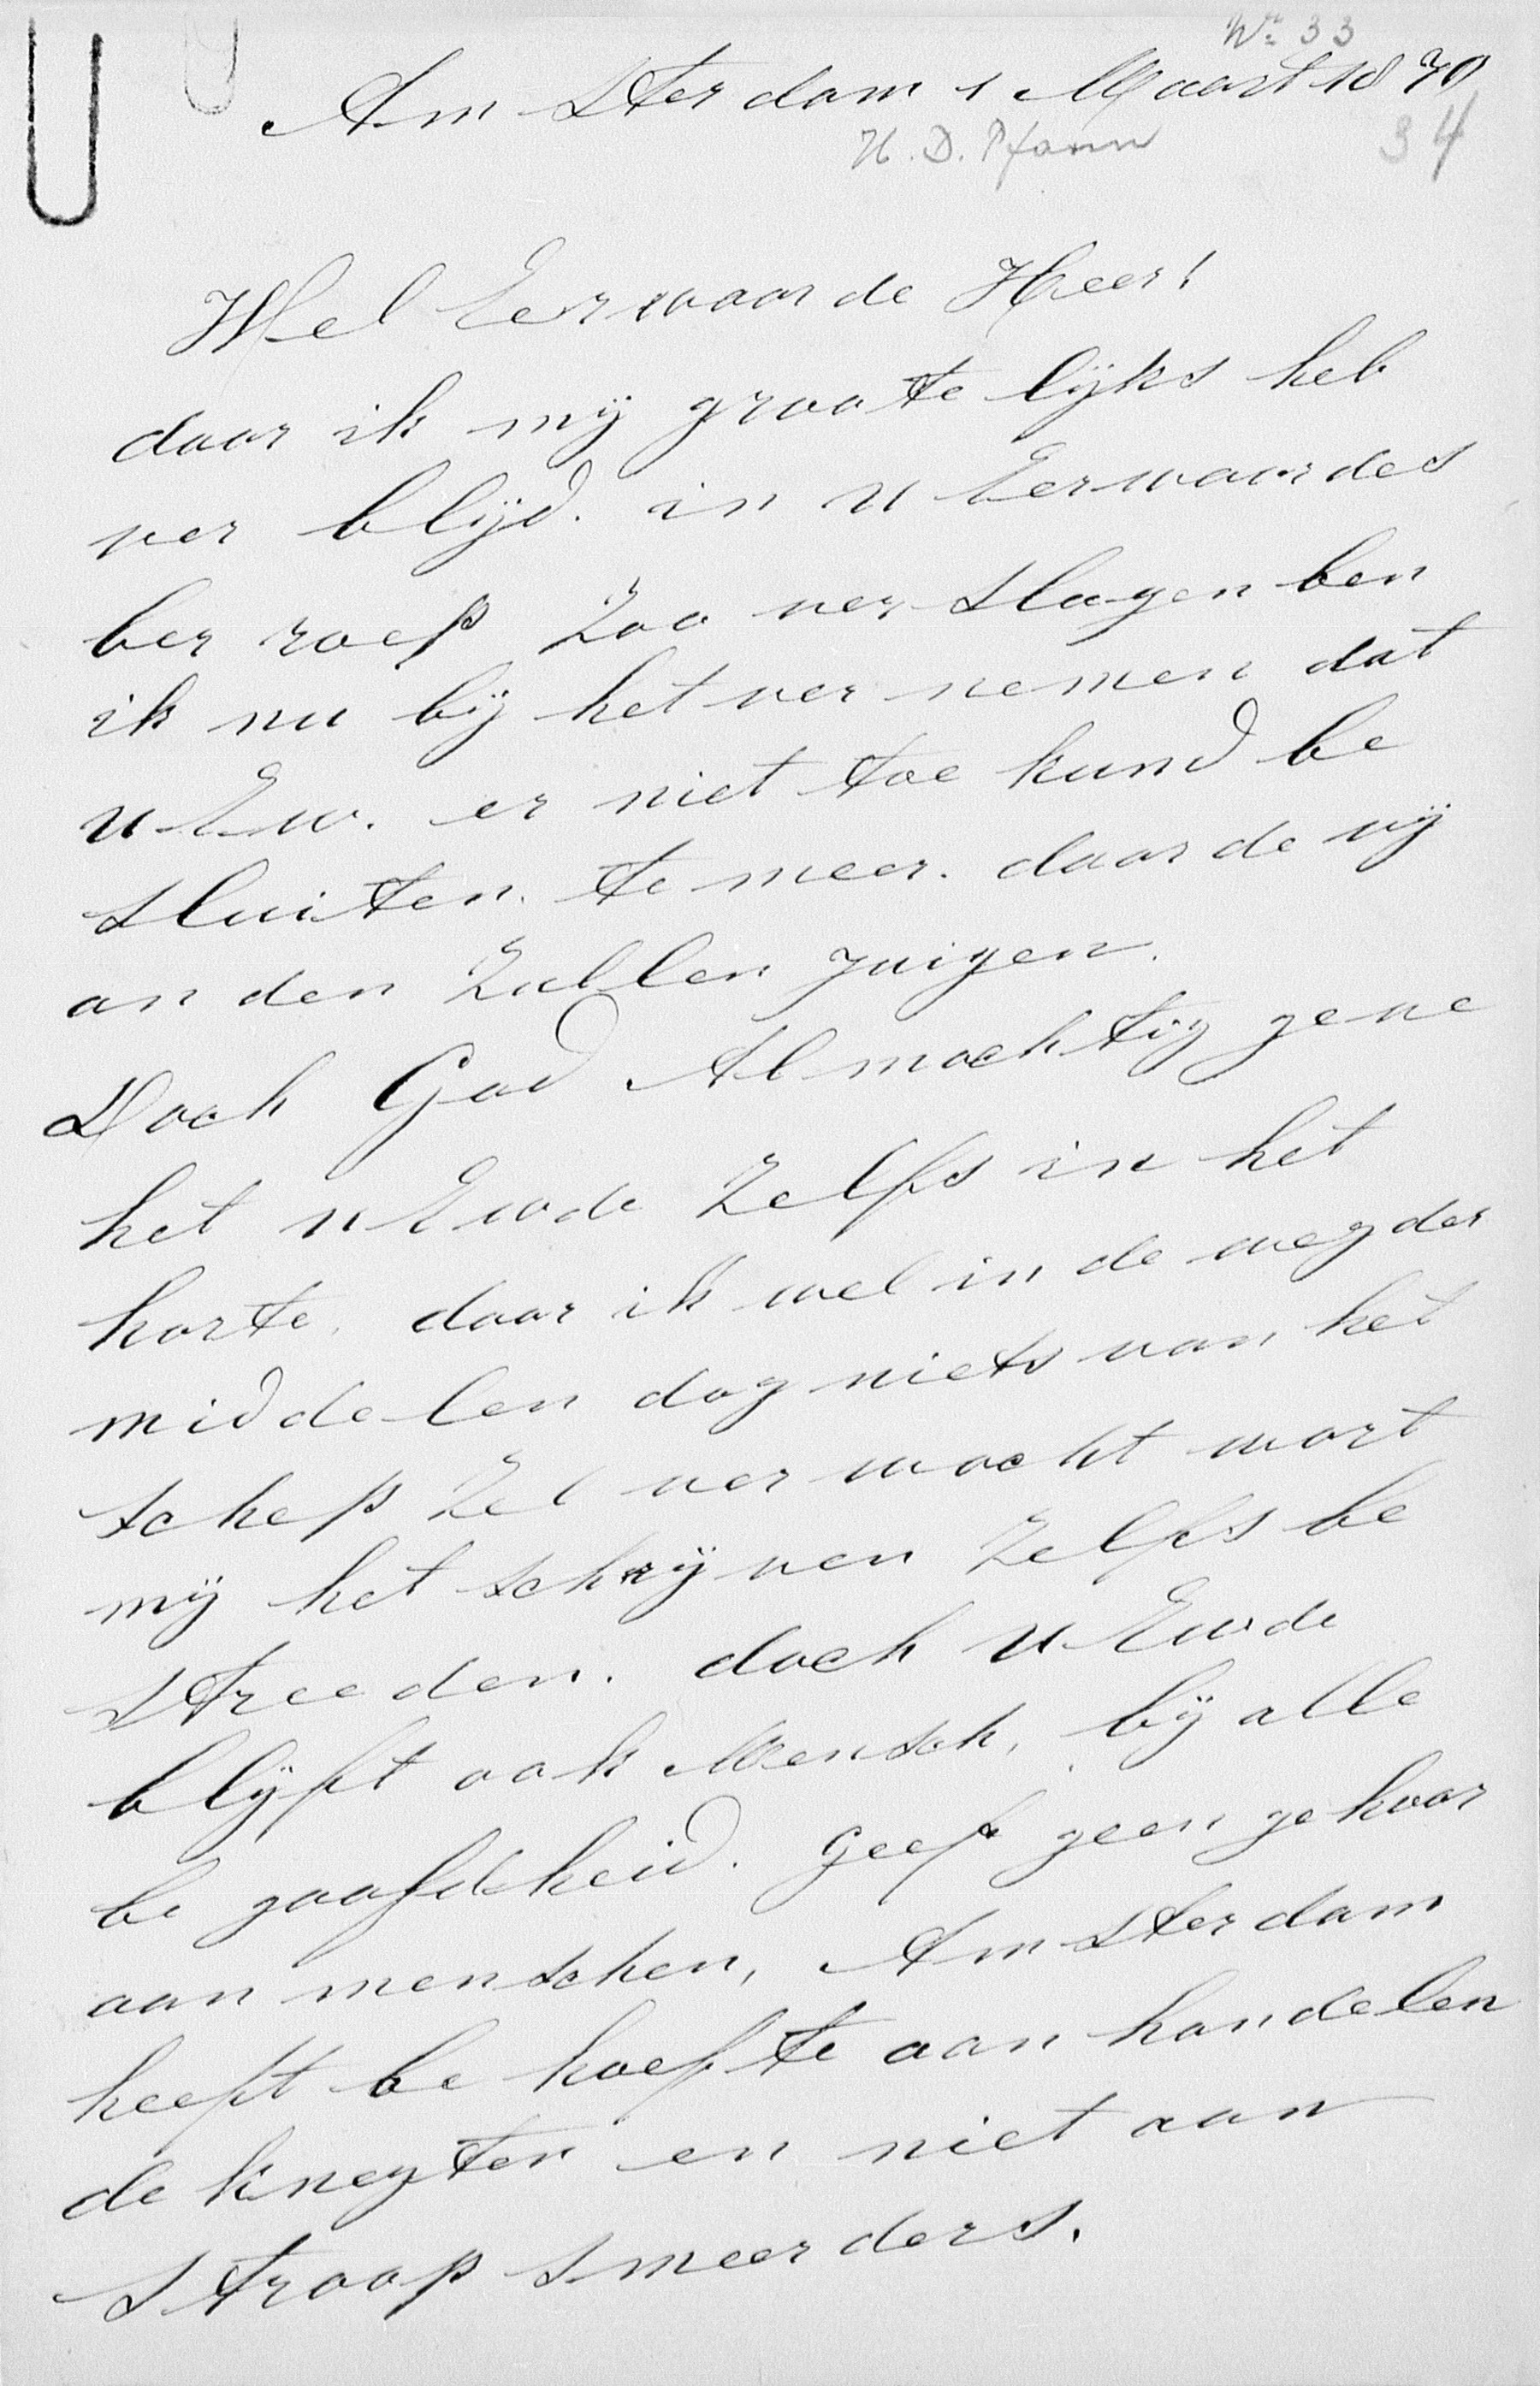 No 33
Am sterdam 1 Maart 1870
H. D. Pfann
34
Wel Eerwaarde Heer!
daar ik mij groote lijks heb
ver blijd. in u Eerwaardes
ber roep zoo ver slagen ben
ik nu bij het ver nemen dat
u Ew. er niet toe kund be
sluiten. te meer. daar de vij
an den zullen juigen.
Doch God Almachtig geve
het u Ewde zelfs in het
harte, daar ik wel in de weg der
middelen dog niets van het
schep zel ver wacht wort
mij het schrijven zelfs be
streeden. doch u Ewde
blijft ook Mensch, bij alle
be gaafdheid. geef geen gehoor
aan menschen, Am sterdam
heeft be hoefte aan handelen
de kneg ten en niet aan
stroop smeerders.